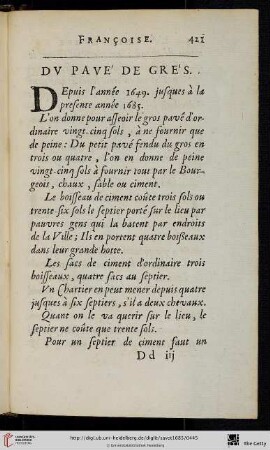 FRANÇOISE. 421
DV PAVE' DE GRE'S.
DEpuis l'année 1649. jusques à la
presente année 1685.
L'on donne pour asseoir le gros pavé d'or-
dinaire vingt-cinq sols, à ne fournir que
de peine: Du petit pavé fendu du gros en
trois ou quatre, l'on en donne de peine
vingt-cinq sols à fournir tout par le Bour-
geois, chaux, sable ou ciment.
Le boisseau de ciment coûte trois sols ou
trente six sols le septier porté sur le lieu par
pauvres gens qui la batent par endroits
de la Ville; Ils en portent quatre boisseaux
dans leur grande hotte.
Les sacs de ciment d'ordinaire trois
boisseaux, quatre sacs au septier.
Vn Chartier en peut mener depuis quatre
jusques à six septiers, s'il a deux chevaux.
Quant on le va querir sur le lieu, le
septier ne coûte que trente sols.
Pour un septier de ciment faut un
D d iij
http://digi.ub.uni-heidelberg.de/diglit/savot1685/0445